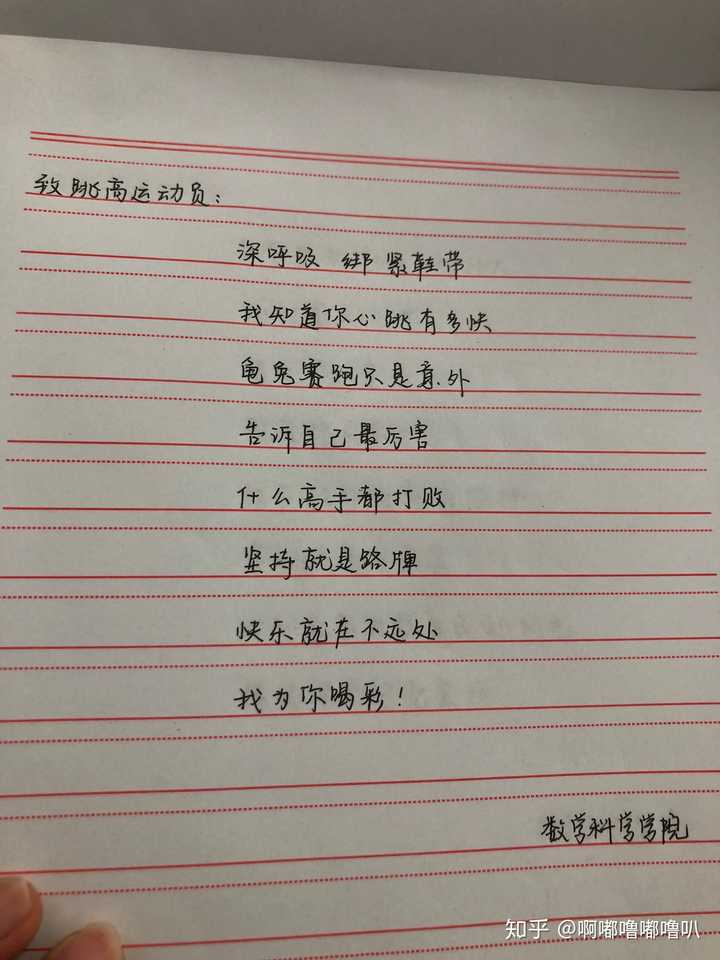 致跳高运动员：
深呼吸 绑紧鞋带
我知道你心跳有多快
龟兔赛跑只是意外
告诉自己最厉害
什么高手都打败
坚持就是路牌
快乐就在不远处
我为你喝彩！
数学科学学院
知乎 @啊嘟噜嘟噜叭